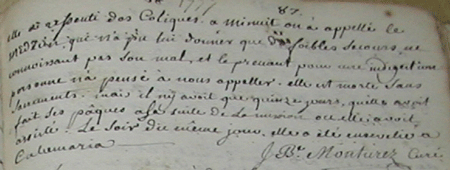 87.
elle a ressenti des Coliques. a minuit on a appellé le
médecin qui n'a pu lui donner que des foibles secours, ne
connoissant pas son mal, et le prenant pour une indigestion
personne n'a pensée à nous appeller. elle est morte sans
sacrements. mais il n'y avoit que quinze jours, qu'elle avoit
fait ses pâques a la suite de la mission ou elle avoit
assistée. Le Soir du même jour, elle a été ensevelie a
Calvmaria
J. Bte. Curé.